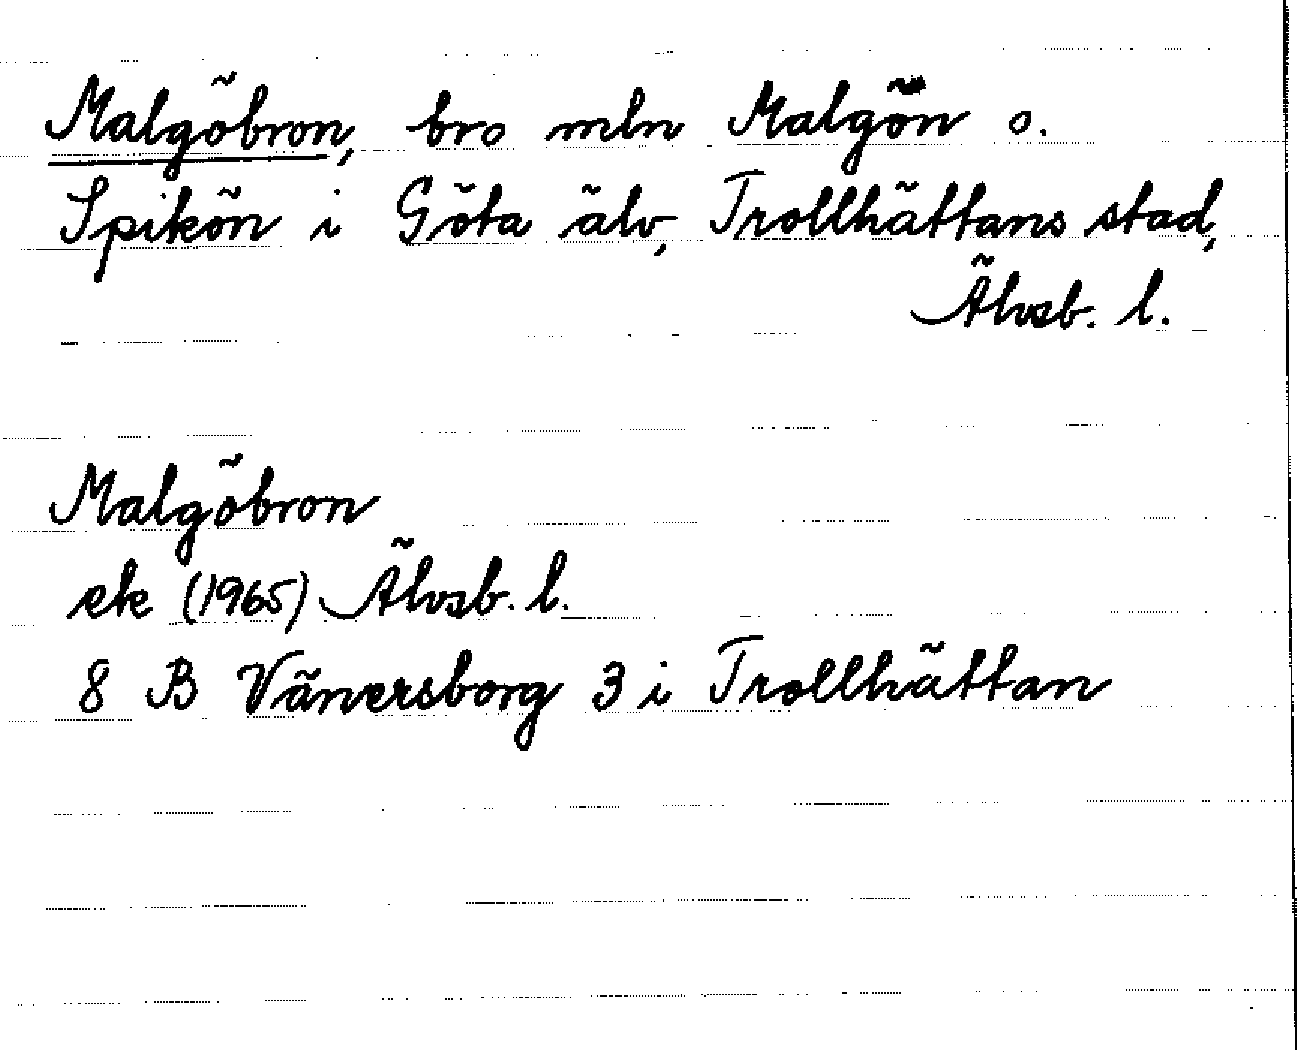 Malgöbron, bro mln Malgön o.
Spikön i Göta älv, Trollhättans stad,
Älvsb. l.
Malgöbron
ek (1965) Älvsb. l.
8 B Vänersborg 3 i Trollhättan